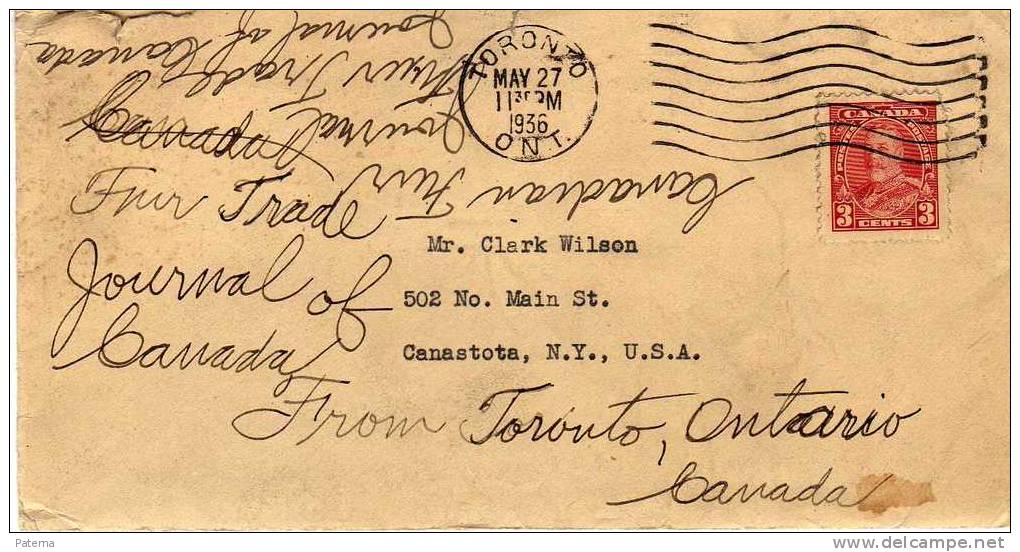 Journal of Canada
Fur Trade
Journal
Canadian Fur
TORONTO
MAY 27
1130PM
1936
ONT.
CANADA
POSTES POSTAGE
3 CENTS 3
Canada
Fur Trade
Journal of
Canada
Mr. Clark Wilson
502 No. Main St.
Canastota, N.Y., U.S.A.
From Toronto, Ontario
Canada
Paterna
delcampe.net